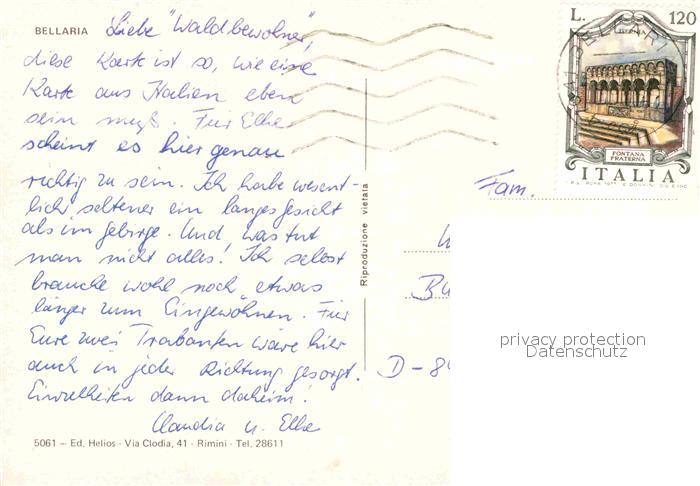 BELLARIA
Liebe "Waldbewohner",
diese Karte ist so, wie eine
Karte aus Italien eben
sein muß. Für Elke
scheint es hier genau
richtig zu sein. Ich habe wesent-
lich seltener ein langes Gesicht
als im Gebirge. Und, was tut
man nicht alles! Ich selbst
brauche wohl noch etwas
länger zum Eingewöhnen. Für
Eure zwei Trabanten wäre hier
auch in jeder Richtung gesorgt.
Einzelheiten dann daheim!
Claudia u. Elke
5061 – Ed. Helios - Via Clodia, 41 - Rimini - Tel. 28611
Riproduzione vietata
L. 120
ISERNIA
FONTANA
FRATERNA
ITALIA
Fam.
D-8
privacy protection
Datenschutz